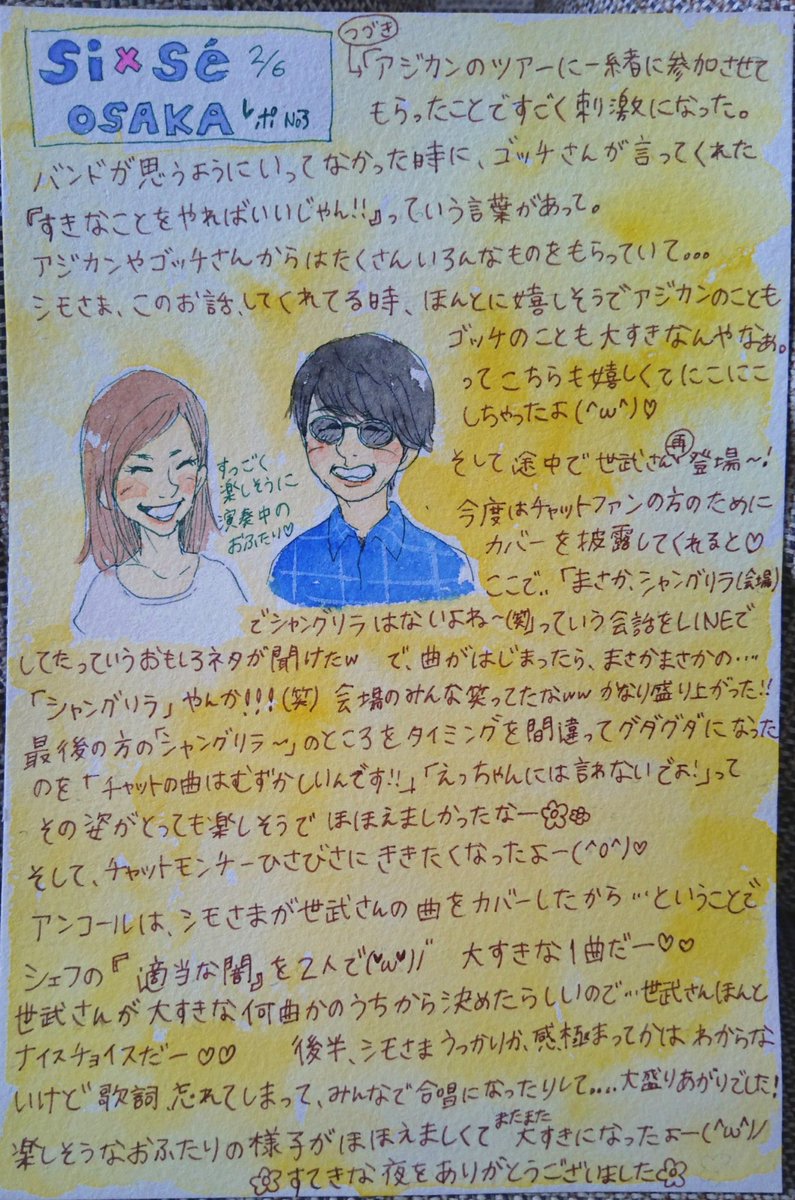 Si×Sé 2/6
OSAKA レポ No3
つづき
「アジカンのツアーに一緒に参加させて
もらったことですごく刺激になった。
バンドが思うようにいってなかった時に、ゴッチさんが言ってくれた
『すきなことをやればいいじゃん!!』っていう言葉があって。
アジカンやゴッチさんからはたくさんいろんなものをもらっていて…
シモさま、このお話、してくれてる時、ほんとに嬉しそうでアジカンのことも
ゴッチのことも大すきなんやなぁ。
ってこちらも嬉しくてにこにこ
しちゃったよ(^ω^)♡
すっごく
楽しそうに
演奏中の
おふたり♡
そして途中で世武さん再登場〜!
今度はチャットファンの方のために
カバーを披露してくれると♡
ここで、「まさか、シャングリラ(会場)
でシャングリラはないよね〜(笑)」っていう会話をLINEで
してたっていうおもしろネタが聞けたw で、曲がはじまったら、まさかまさかの…
「シャングリラ」やんか!!!(笑) 会場のみんな笑ってたなww かなり盛り上がった!!
最後の方の「シャングリラ〜」のところをタイミングを間違ってグダグダになった
のを「チャットの曲はむずかしいんです!!」「えっちゃんには言わないでよ!」って
その姿がとっても楽しそうでほほえましかったなー
そして、チャットモンチーひさびさにききたくなったよー(^o^)♡
アンコールは、シモさまが世武さんの曲をカバーしたから…ということで
シェフの『適当な闇』を2人で(♥ω♥)ﾉﾞ 大すきな1曲だー♡♡
世武さんが大すきな何曲かのうちから決めたらしいので…世武さんほんと
ナイスチョイスだー♡♡ 後半、シモさまうっかりか、感極まってかは わからな
いけど歌詞忘れてしまって、みんなで合唱になったりして....大盛りあがりでした!
楽しそうなおふたりの様子がほほえましくてまたまた大すきになったよー(^ω^)ﾉ
すてきな夜をありがとうございました